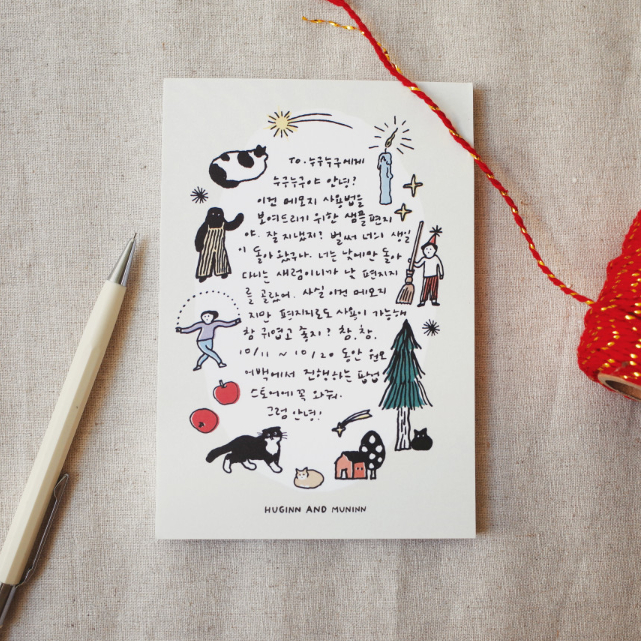 To. 누구누구에게
누구누구야 안녕?
이건 메모지 사용법을
보여드리기 위한 샘플편지
야. 잘 지냈지? 벌써 너의 생일
이 돌아왔구나. 너는 낮에만 돌아
다니는 새럼이니가 날 편지지
를 골랐어. 사실 이건 메모지
지만 편지지로도 사용이 가능해
참 귀엽고 좋지? 참, 참,
10/11 ~ 10/20 동안 원모
어백에서 진행하는 팝업
스토어에 꼭 와줘.
그럼 안녕!
HUGINN AND MUNINN